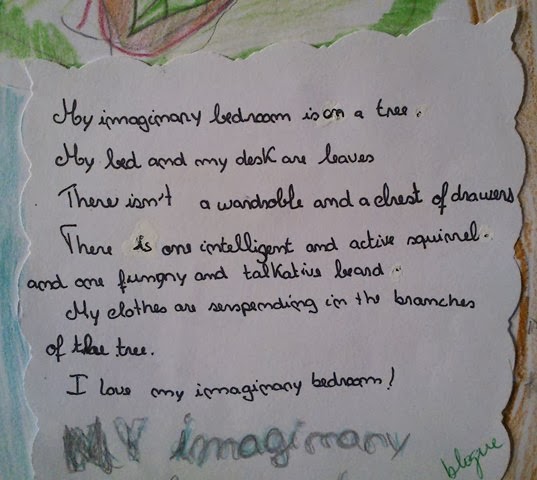 My imaginary bedroom is on a tree.
My bed and my desk are leaves
There isn't a wardroble and a chest of drawers
There is one intelligent and active squirrel.
and one fungny and talkative beard.
My clothes are senspending in the branches
of the tree.
I love my imaginary bedroom!
MY imaginary
blogue